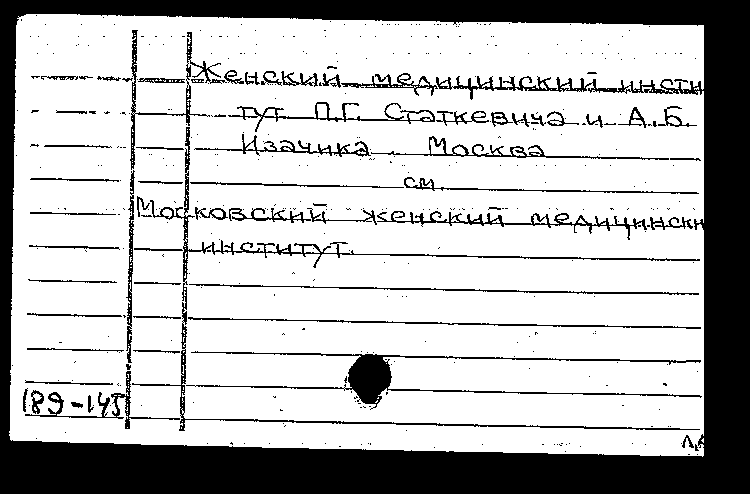 Женский медицинский инсти
тут П.Г. Статкевича и А.Б.
Изачика. Москва
см.
Московский женский медицински
институт.
189-145